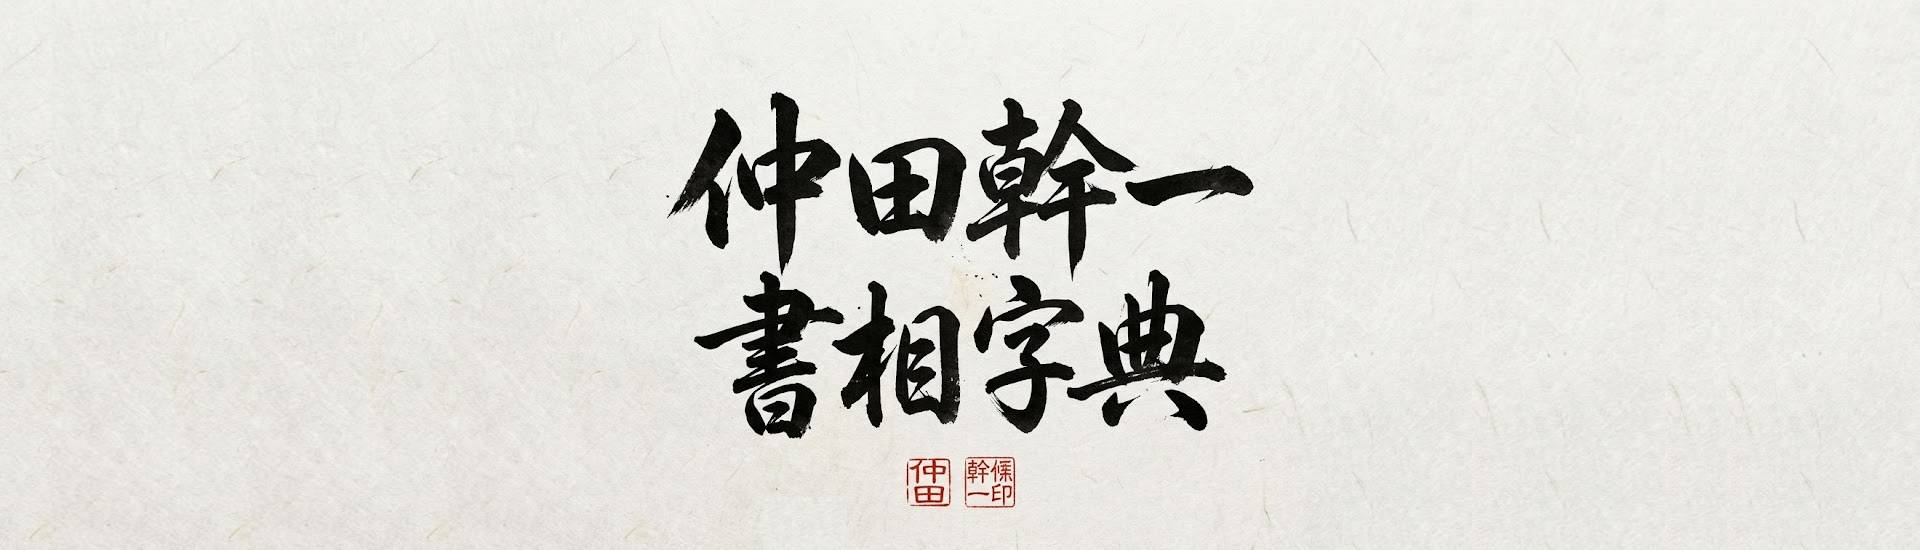 仲田幹一
書相字典
仲田
幹一印